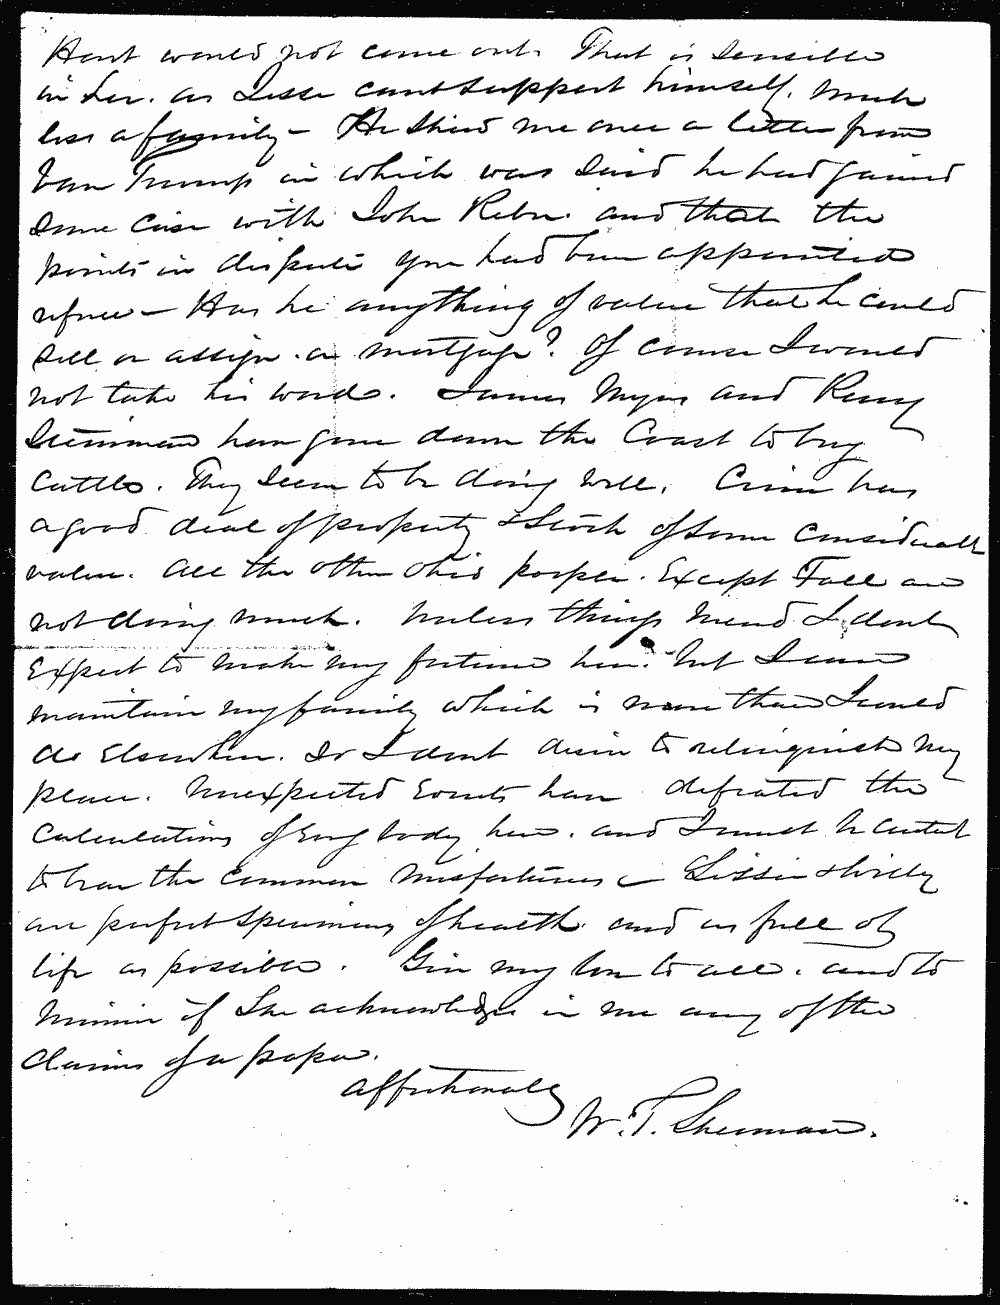 Hunt would not come out. That is sensible
in her. as Jesse cant support himself. Much
less a family - He shewd me once a letter from
Van Trump in which was said he had gained
some case with John Reber. and that the
points in dispute you had been appointed
referee - Has he anything of value that he could
sell or assign. or mortgage? Of course I would
not take his word. James Myers and
have gone down the Coast to buy
Cattle. They seem to be doing well. has
a good deal of property & Stock of some considerable
value. All the other Ohio people. Except Fall are
not doing much. Unless things mend I dont
Expect to make my fortune here. but I can
maintain my family which is more than I could
do Elsewhere. So I dont desire to relinquish my
place. Unexpected Events have defeated the
Calculations of Every body here. and I must be content
to bear the Common Misfortunes - Lizzie & Willy
are perfect Specimens of health. and as full of
life as possible. Give my love to all. and to
Minnie if She acknowledges in me any of the
Claims of a papa.
affectionately
W. T. Sherman.